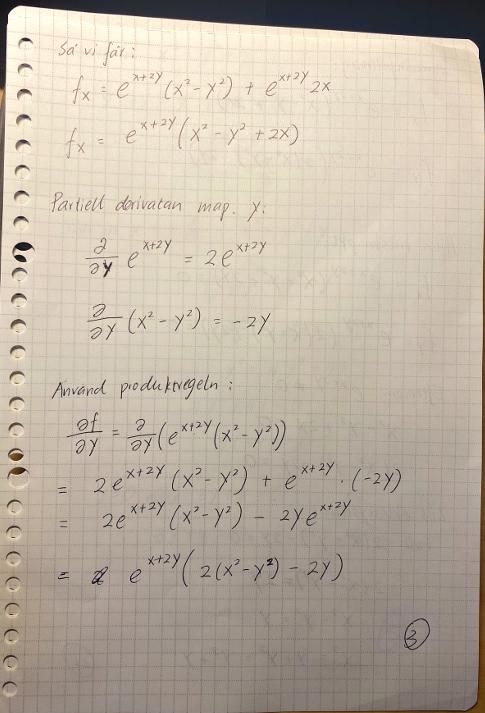 Så vi får:
fx = e^(x+2y) (x² - y²) + e^(x+2y) 2x
fx = e^(x+2y) (x² - y² + 2x)
Partiell derivatan map. y:
∂/∂y e^(x+2y) = 2e^(x+2y)
∂/∂y (x² - y²) = -2y
Använd produktregeln:
∂f/∂y = ∂/∂y (e^(x+2y) (x² - y²))
= 2e^(x+2y) (x² - y²) + e^(x+2y) · (-2y)
= 2e^(x+2y) (x² - y²) - 2ye^(x+2y)
= e^(x+2y) (2(x² - y²) - 2y)
3